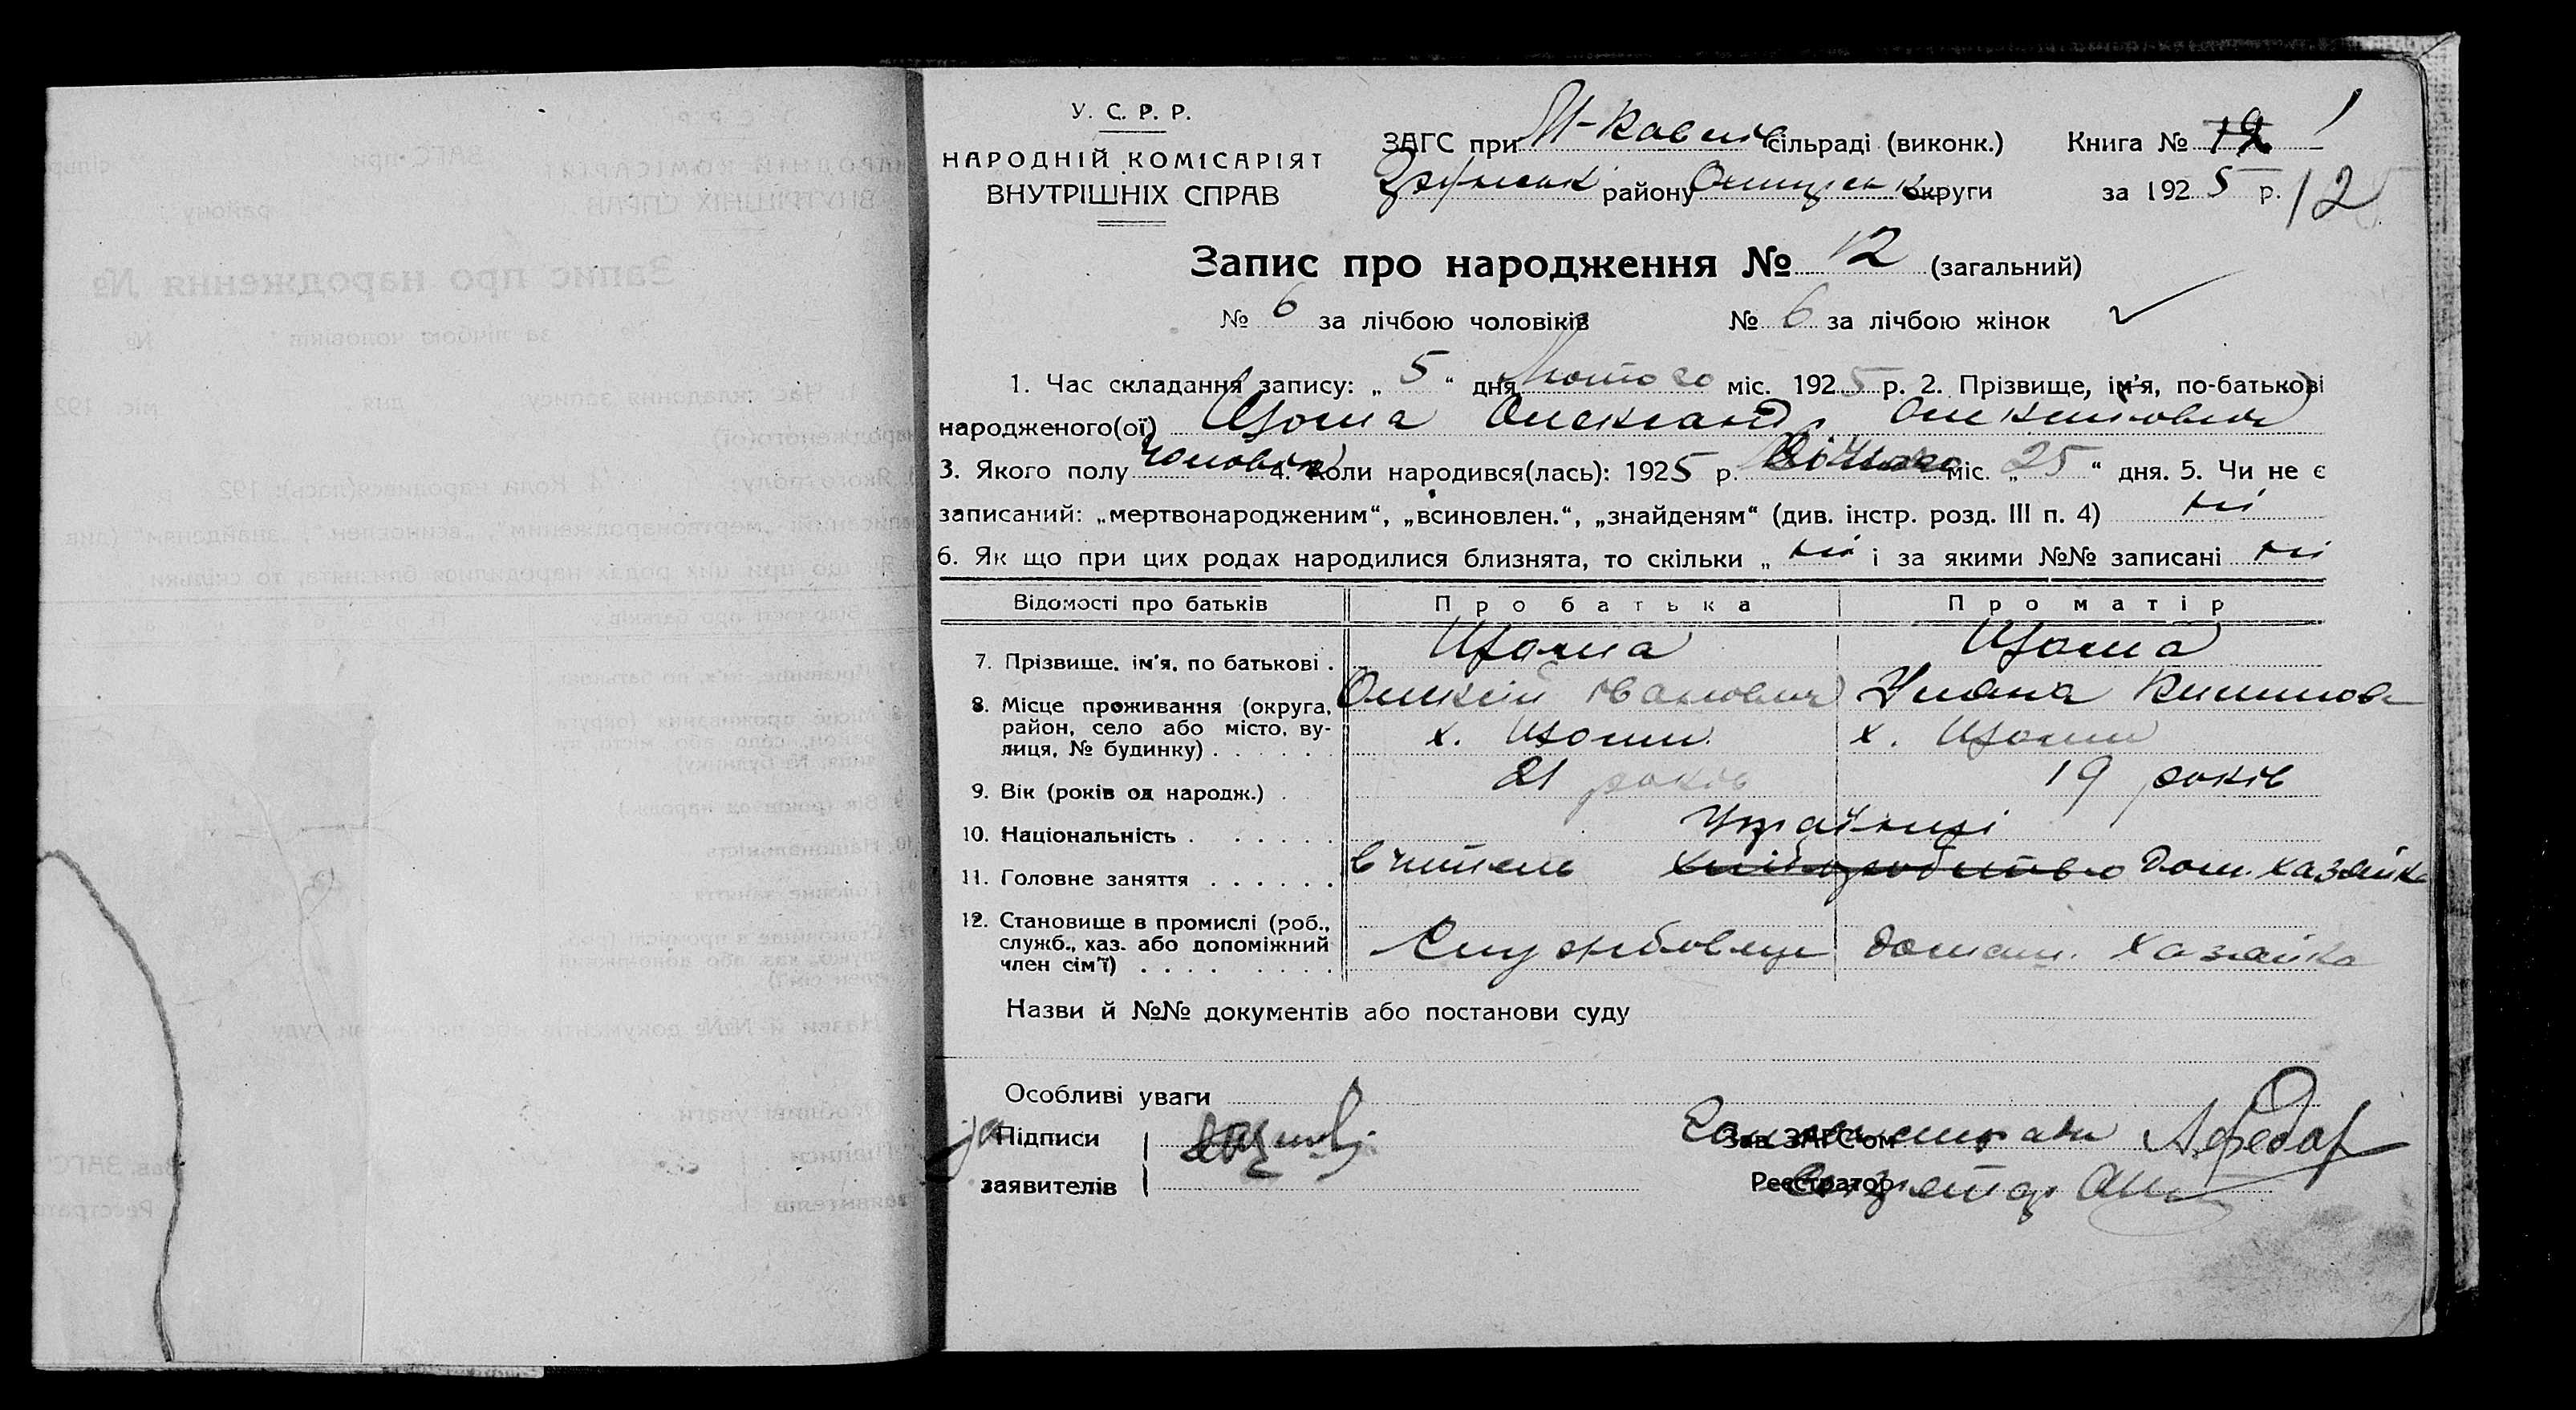 У. С. Р. Р.
НАРОДНІЙ КОМІСАРІЯТ
ВНУТРІШНІХ СПРАВ
ЗАГС при сільраді (виконк.) Книга № 1
району округи за 1925 р. 12
Запис про народження № 12 (загальний)
№ 6 за лічбою чоловіків № 6 за лічбою жінок
1. Час складання запису: „ 5 “ дня Лютого міс. 1925 р. 2. Прізвище, ім’я, по-батькові
народженого(ої) Цьома Олександр
3. Якого полу чоловік 4. Коли народився(лась): 1925 р. Січня міс. „ 25 “ дня. 5. Чи не є
записаний: „мертвонародженим“, „всиновлен.“, „знайденям“ (див. інстр. розд. III п. 4) ні
6. Як що при цих родах народилися близнята, то скільки „ ні і за якими №№ записані ні
Відомості про батьків Про батька Про матір
7. Прізвище, ім’я, по батькові . Цьома Цьома
Олексій Іванович Уляна
8. Місце проживання (округа,
район, село або місто, ву-
лиця, № будинку) . . . . . х. Цьоми х. Цьоми
9. Вік (років од народж.) . 21 років 19 років
10. Національність . . . . . . Українці
11. Головне заняття . . . . . . вчитель хліборобство дом. хазяйка
12. Становище в промислі (роб.,
служб., хаз. або допоміжний
член сім’ї) . . . . . . . . Службовець домаш. хазяйка
Назви й №№ документів або постанови суду
Особливі уваги
Підписи
Зав. ЗАГС'ом
заявителів
Реєстратор